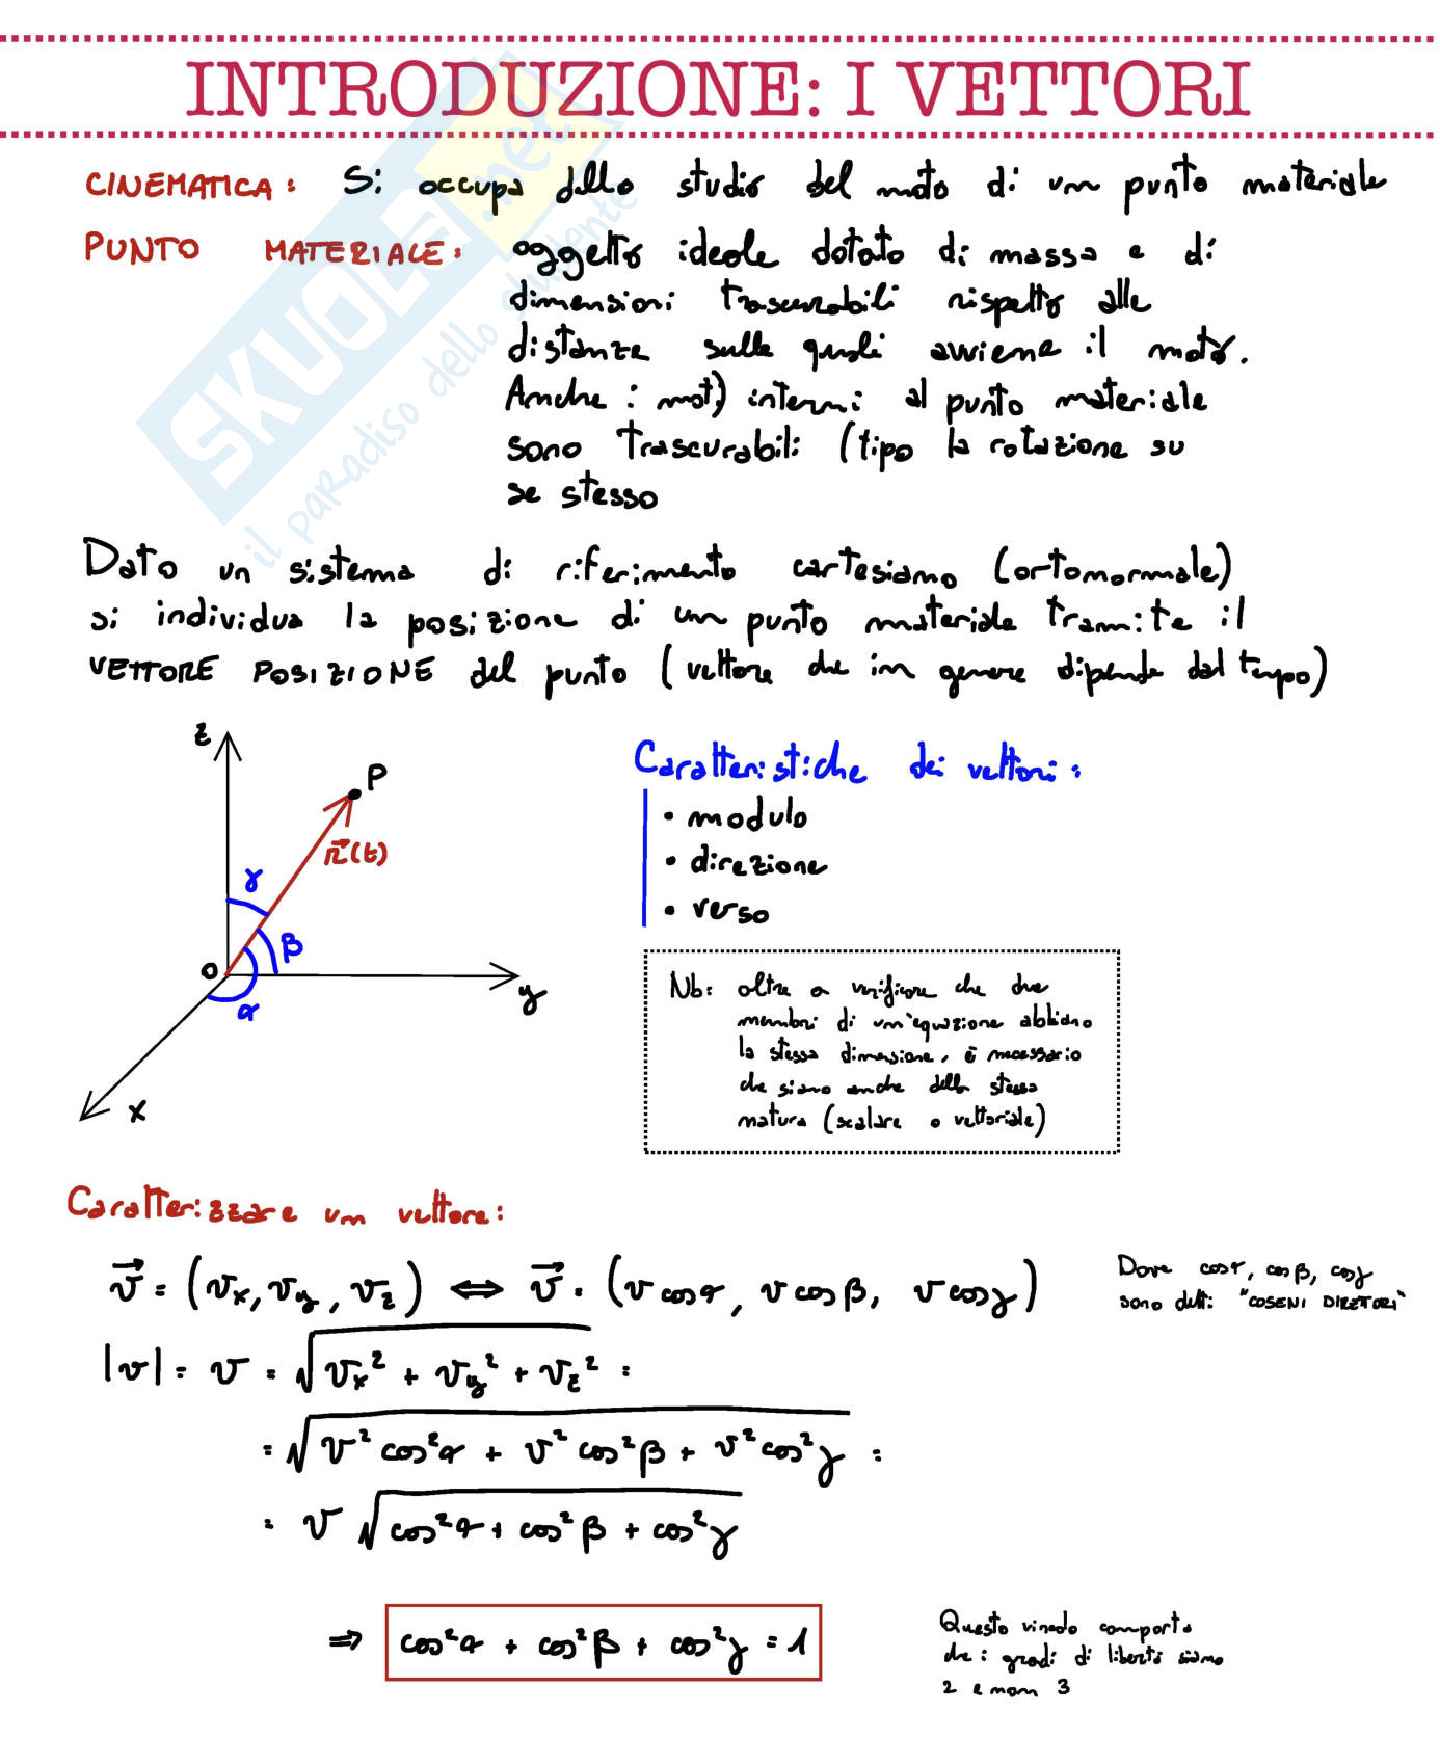 INTRODUZIONE: I VETTORI
CINEMATICA: Si occupa dello studio del moto di un punto materiale
PUNTO MATERIALE: oggetto ideale dotato di massa e di
dimensioni trascurabili rispetto alle
distanze sulle quali avviene il moto.
Anche i moti interni al punto materiale
sono trascurabili (tipo la rotazione su
se stesso
SKUOLA.net
il paradiso dello studente
Dato un sistema di riferimento cartesiano (ortonormale)
si individua la posizione di un punto materiale tramite il
VETTORE POSIZIONE del punto (vettore che in genere dipende dal tempo)
z
P
r⃗(t)
γ
β
O
α
y
x
Caratteristiche dei vettori:
• modulo
• direzione
• verso
Nb: oltre a verificare che due
membri di un'equazione abbiano
la stessa dimensione, è necessario
che siano anche della stessa
natura (scalare o vettoriale)
Caratterizzare un vettore:
v⃗ = (vx, vy, vz) ⟺ v⃗ = (v cosα, v cosβ, v cosγ)
Dove cosα, cosβ, cosγ
sono detti: "COSENI DIRETTORI"
|v| = v = √(vx² + vy² + vz²) =
= √(v² cos²α + v² cos²β + v² cos²γ) =
= v √(cos²α + cos²β + cos²γ)
⇒ cos²α + cos²β + cos²γ = 1
Questo vincolo comporta
che i gradi di libertà siano
2 e non 3